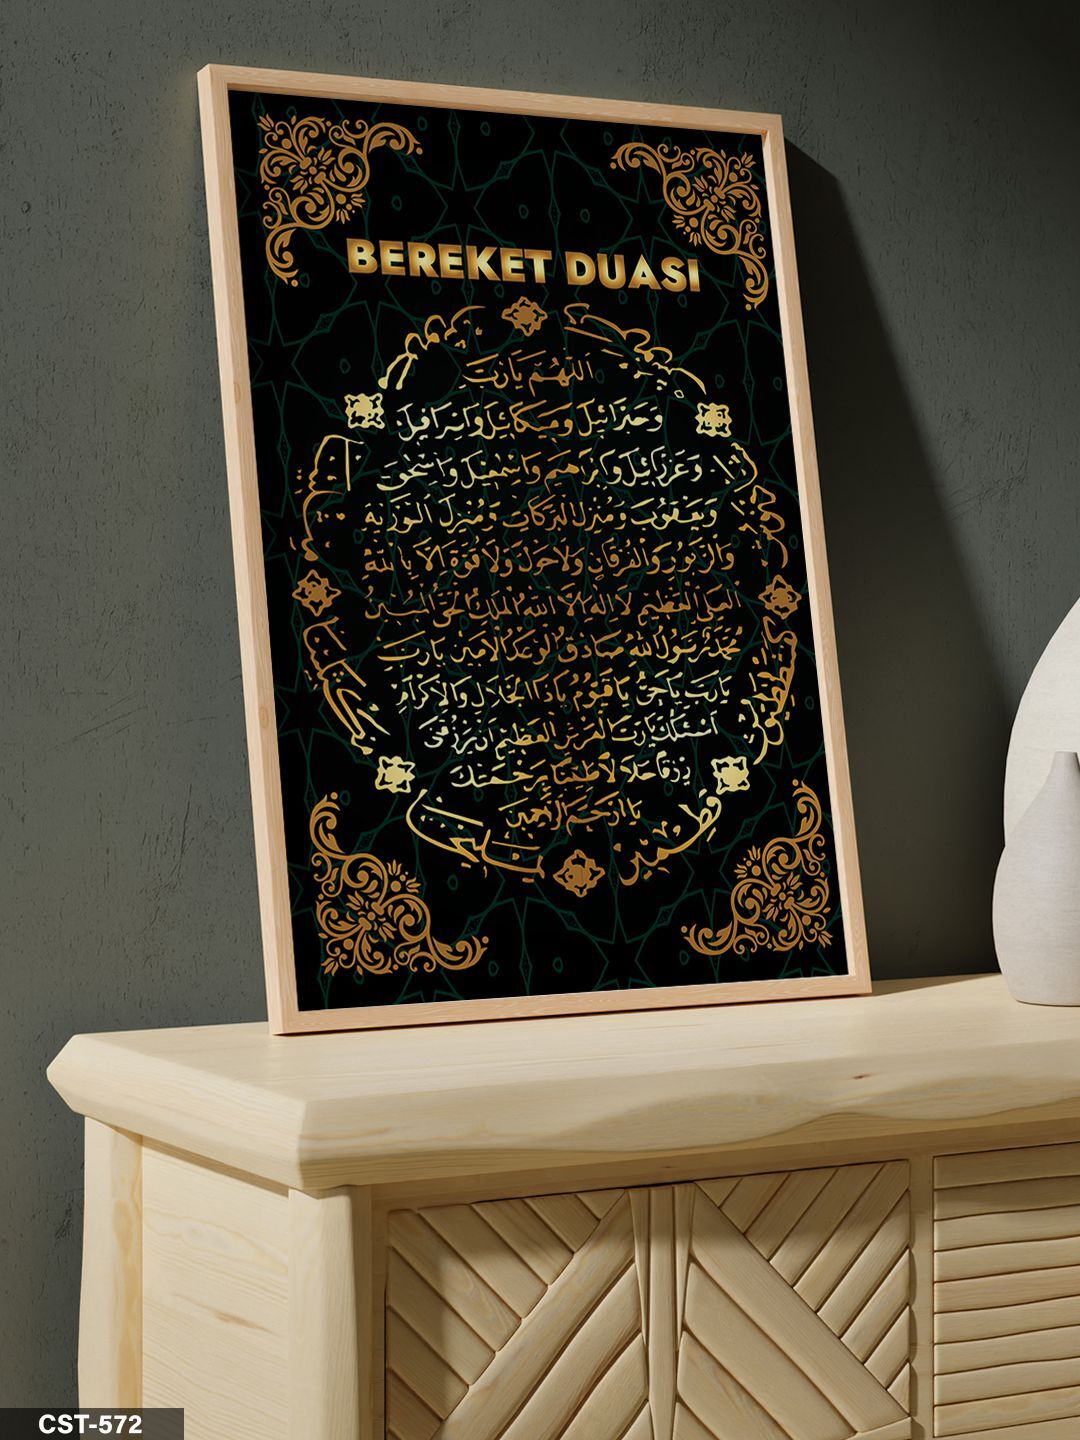 BEREKET DUASI
اللهم يارب
وجبرائيل وميكائيل واسرافيل
وعزرائيل وابراهيم واسمعيل واسحق
ويعقوب ومنزل البركات ومنزل التورية
والزبور والفرقان ولا حول ولا قوة الا بالله
العلى العظيم لا اله الا الله الملك الحق المبين
محمد رسول الله صادق الوعد الامين يارب
يارب ياحى ياقيوم ياذا الجلال والاكرام
اسئلك يارب العرش العظيم ان ترزقنى
رزقا حلالا طيبا برحمتك
يا ارحم الراحمين
CST-572